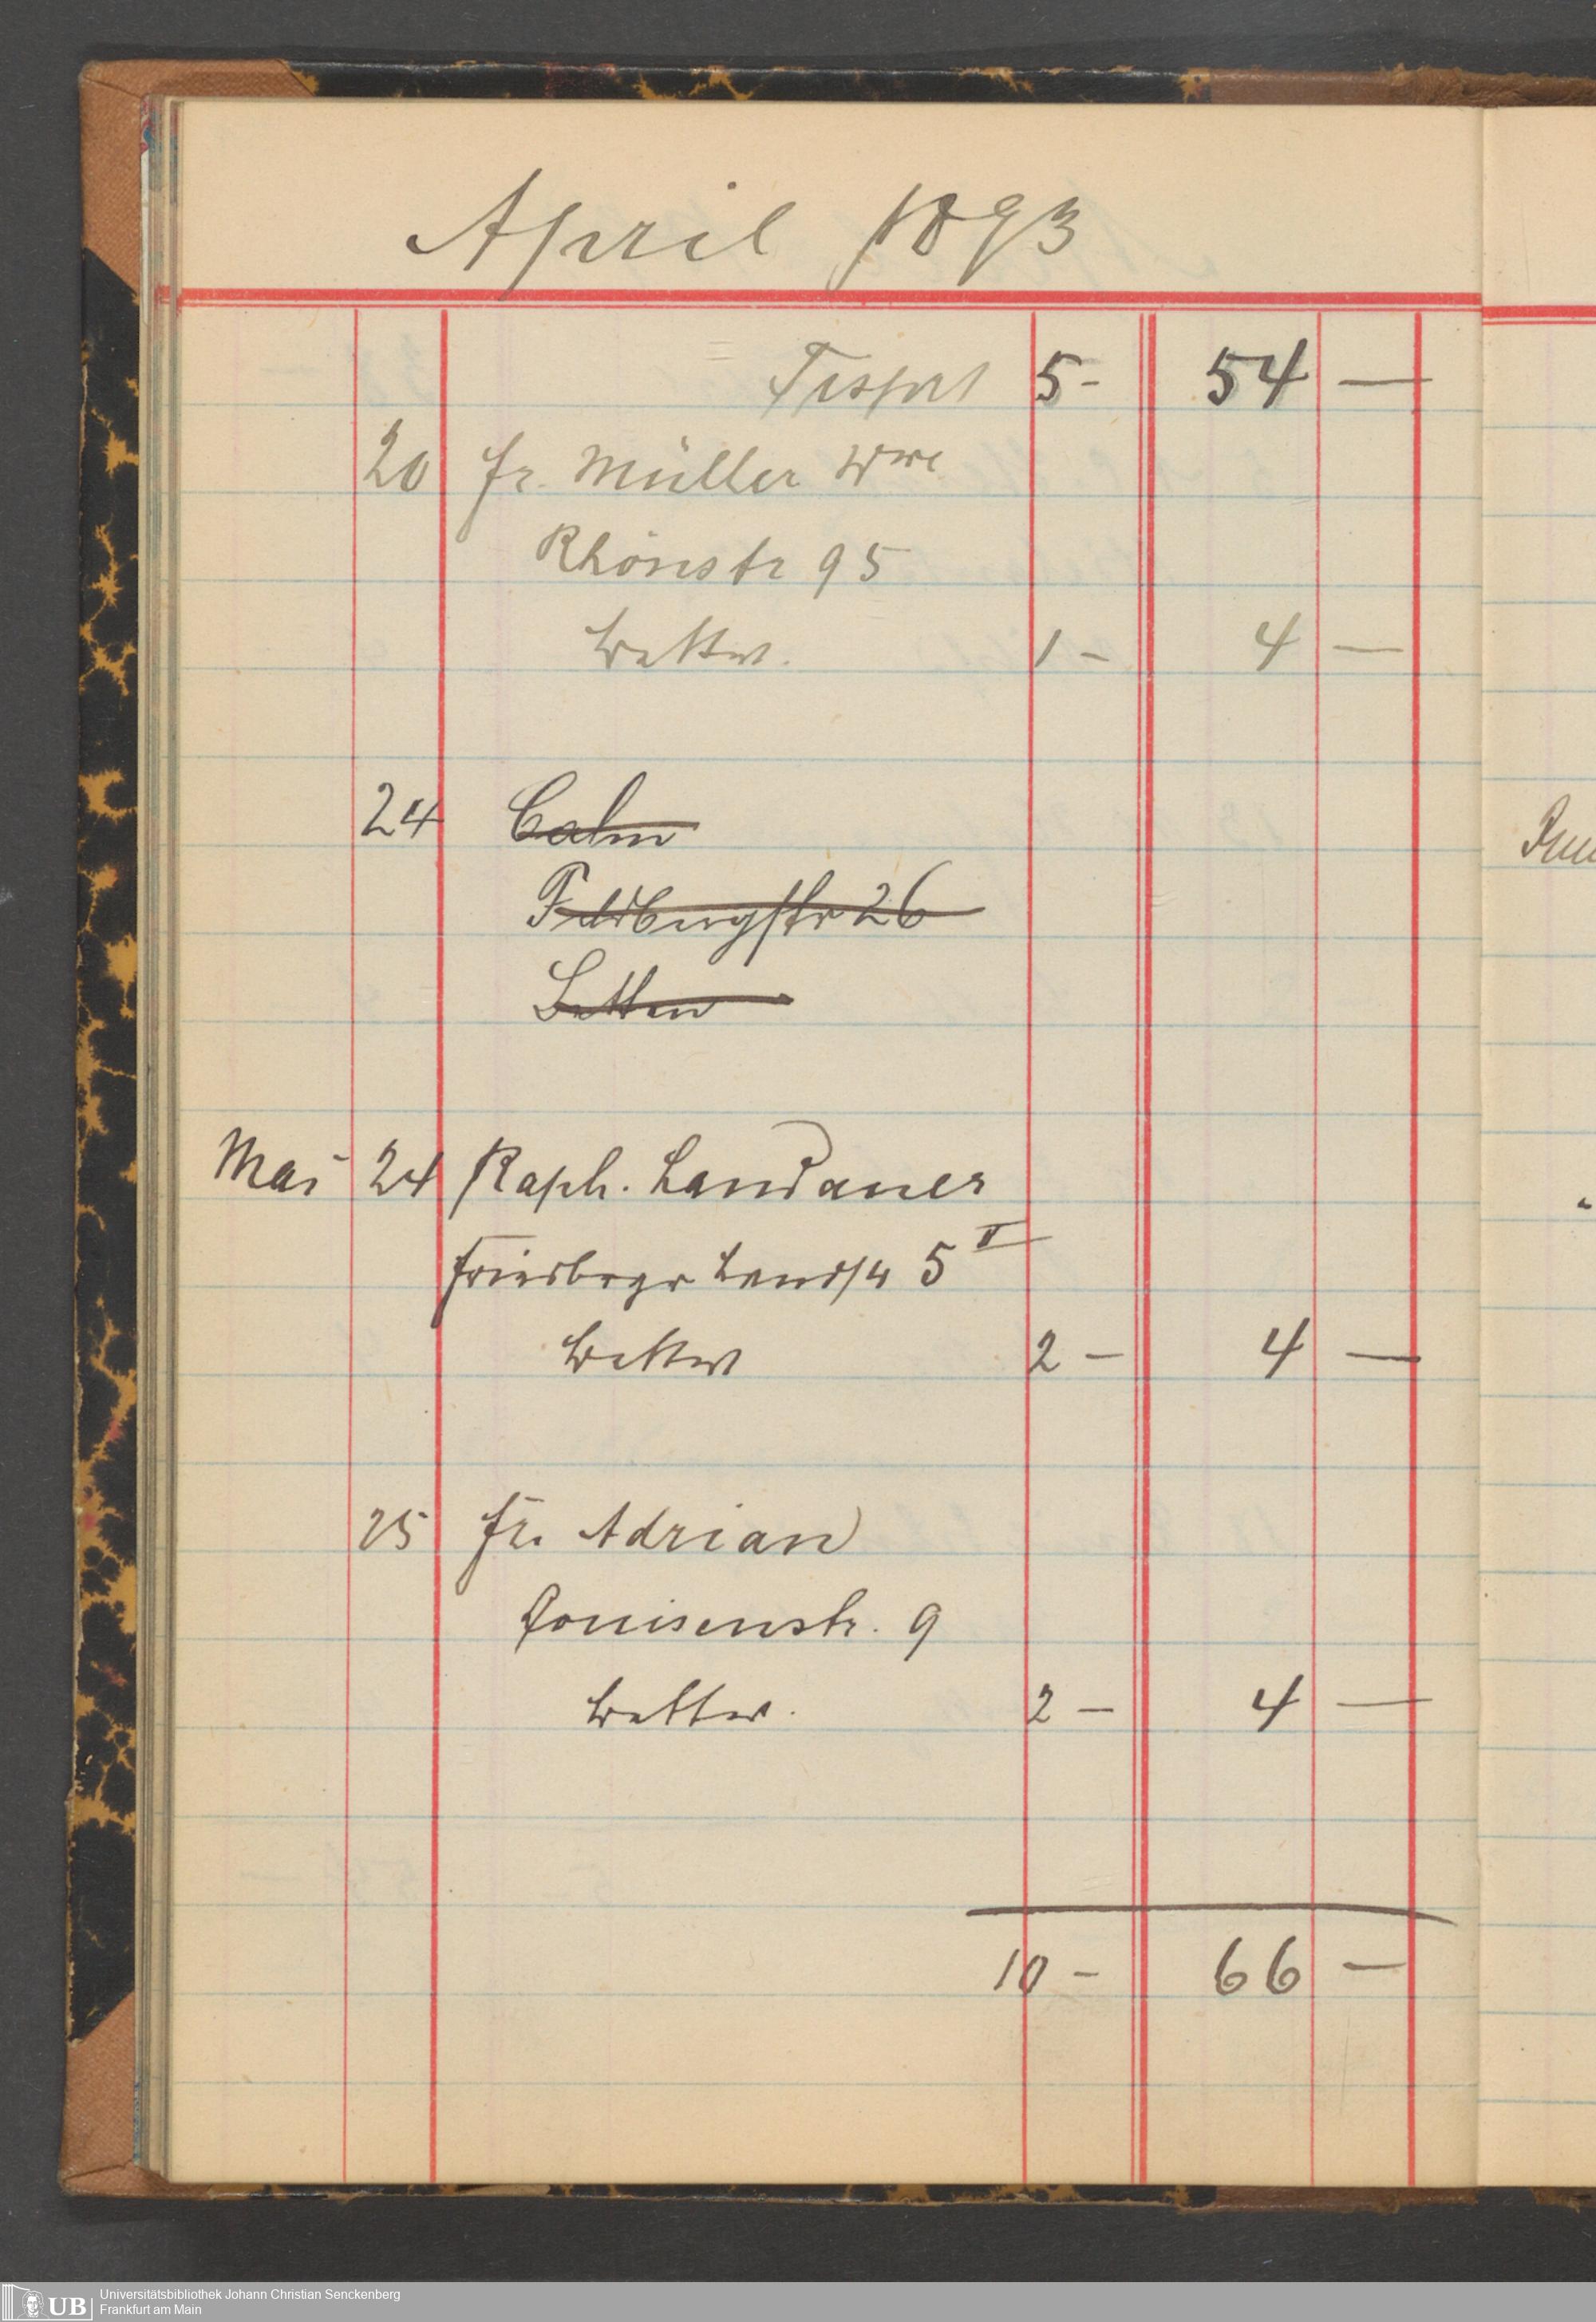 April 1893
Trsprt 5 - 54 —
20 Fr. Müller Wwe
Rhönstr 95
Betten. 1 - 4 —
24 Calm
Feldbergstr 26
Betten
Mai 24 Raph. Landauer
Friedbrgr Landstr 5 II
Betten 2 - 4 —
25 Fr. Adrian
Louisenstr. 9
Betten. 2 - 4 —
10 - 66 —
UB
Universitätsbibliothek Johann Christian Senckenberg
Frankfurt am Main